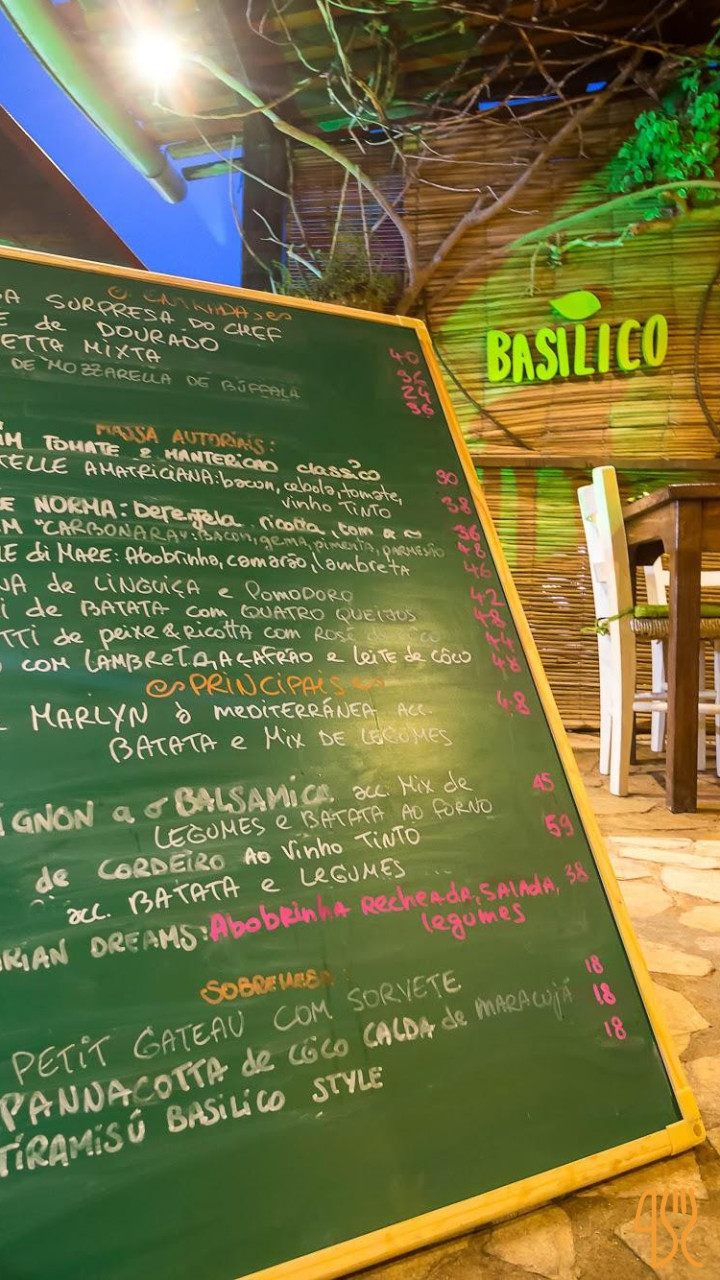 ENTRADAS
A SURPRESA DO CHEF 40
E de DOURADO 36
ETTA MIXTA 24
DE MOZZARELLA DE BÚFFALA 36
BASILICO
MASSA AUTORIAIS:
IM TOMATE & MANTERICAO classico 30
TELLE AMATRICIANA: bacon, cebola, tomate, 38
vinho TINTO
E NORMA: berenjela ricotta, tom 36
M "CARBONARA": BACON, gema, pimenta, PARMESÃO 48
LE di MARE: Abobrinho, camarão, lambreta 46
NA de LINGUIÇA e POMODORO 42
I de BATATA com QUATRO QUEIJOS 48
TTI de peixe & RICOTTA com ROSÉ 44
O COM LAMBRETA, AÇAFRAO e leite de côco 48
PRINCIPAIS
MARLYN à MEDITERRÁNEA ACC. 48
BATATA e Mix DE LEGUMES
IGNON a o BALSAMICO acc. Mix de 45
LEGUMES e BATATA AO FORNO
de CORDEIRO AO Vinho TINTO 59
acc. BATATA e LEGUMES
RIAN DREAMS: Abobrinha Recheada, SALADA, 38
legumes
SOBREMESA
PETIT GATEAU COM SORVETE 18
PANNACOTTA de CÔCO CALDA de MARACUJÁ 18
TIRAMISÚ BASILICO STYLE 18